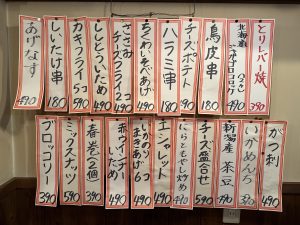 とりレバー焼
390
北海道
ジャガコロコロ
(2ヶ)
490
鳥皮串
180
チーズポテト
490
ハラミ串
180
ちくわいそべあげ
490
ささみ
チーズフライ2コ
490
ししとういため
490
カキフライ5コ
590
しいたけ串
180
あげなす
490
がつ刺
490
いかめんち
390
新潟産 茶豆
490
チーズ盛合せ
590
にらともやし炒め
490
エシャレット
490
いかのり
いそべあげ6コ
490
赤ウインナー
いため
490
春巻(2個)
390
ミックスナッツ
590
ブロッコリー
390